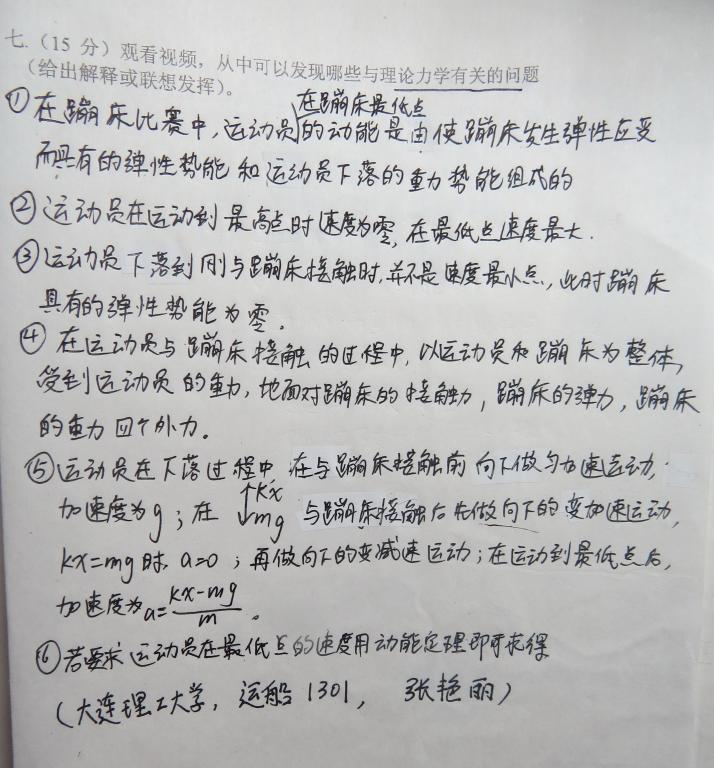 七.（15 分）观看视频，从中可以发现哪些与理论力学有关的问题
（给出解释或联想发挥）。
在蹦床最低点
①在蹦床比赛中，运动员的动能是由使蹦床发生弹性应变
而具有的弹性势能和运动员下落的重力势能组成的
②运动员在运动到最高点时速度为零，在最低点速度最大.
③运动员下落到刚与蹦床接触时，并不是速度最小点，此时蹦床
具有的弹性势能为零。
④在运动员与蹦床接触的过程中，以运动员和蹦床为整体，
受到运动员的重力，地面对蹦床的接触力，蹦床的弹力，蹦床
的重力四个外力。
⑤运动员在下落过程中，在与蹦床接触前向下做匀加速运动，
加速度为g；在 ↑kx ↓mg 与蹦床接触后先做向下的变加速运动，
kx=mg时，a=0；再做向下的变减速运动；在运动到最低点后，
加速度为a=\frac{kx-mg}{m}。
⑥若要求运动员在最低点的速度用动能定理即可求得
（大连理工大学，运船1301，张艳丽）